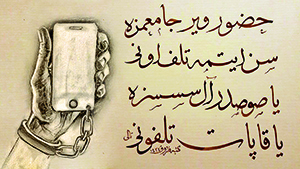 حضور ویر جامعمزه
سن ایتمه تلف اونی
یا صوصدر آل سسسزه
یا قاپات تلفونی